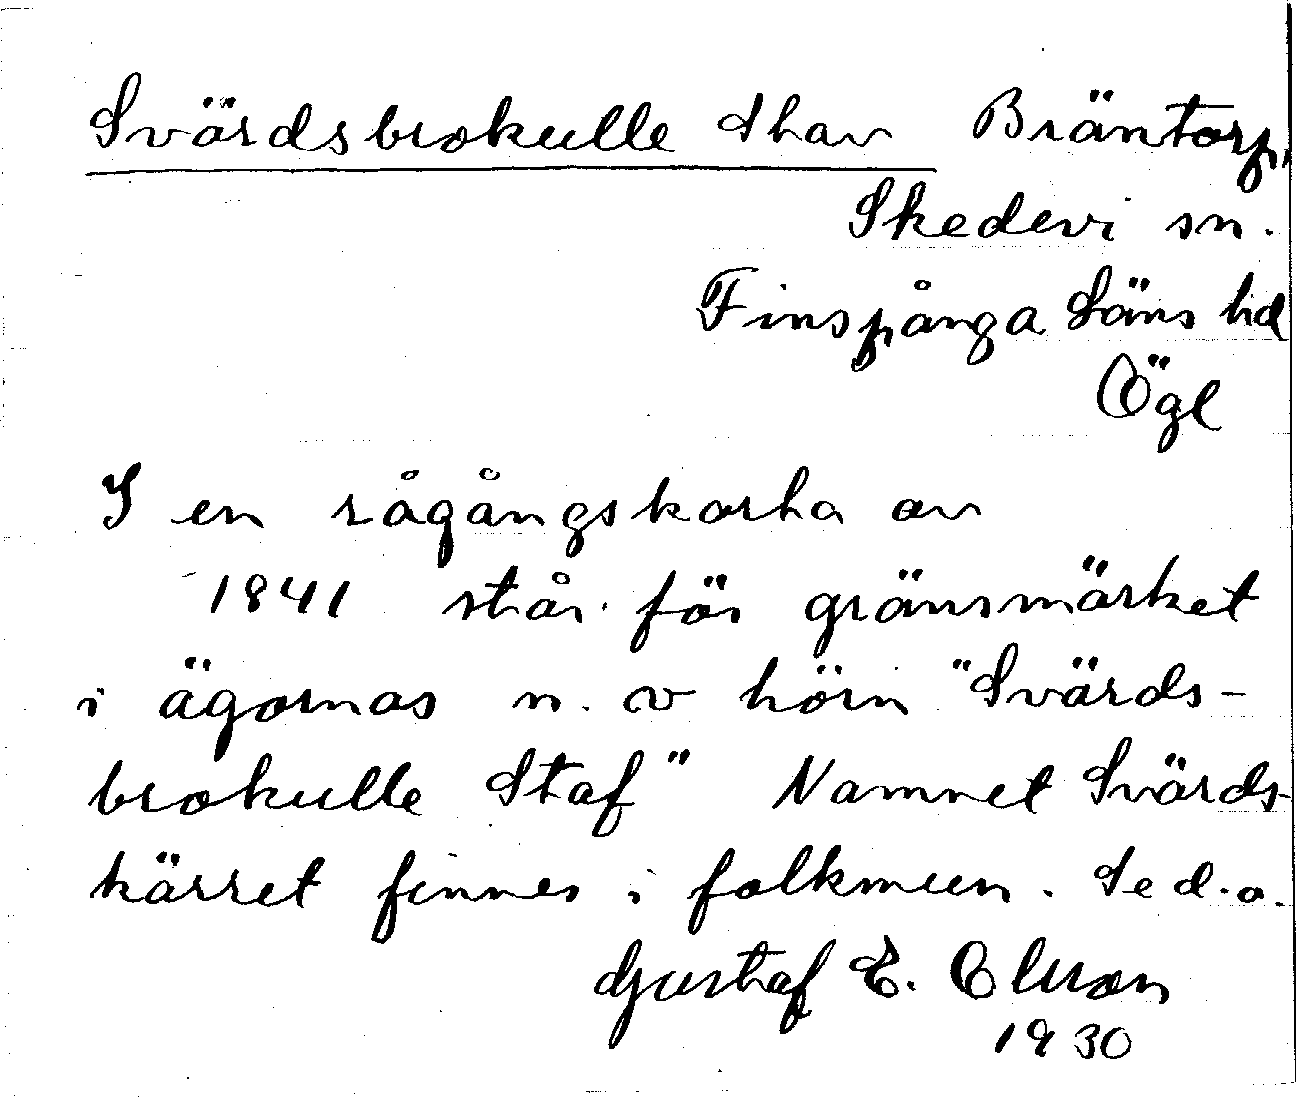 Svärdsbrokulle Stav Bräntorp,
Skedevi sn.
Finspånga Läns hd
Ögl
I en rågångskarta av
1841 står för gränsmärket
i ägornas n. v hörn "Svärds-
brokulle Staf" Namnet Svärds-
kärret finnes i folkmun. Se d.o.
Gustaf E. Olsson
1930